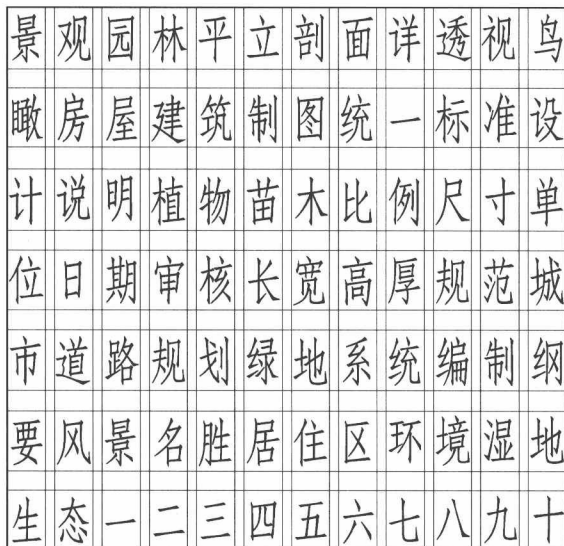 景观园林平立剖面详透视鸟
瞰房屋建筑制图统一标准设
计说明植物苗木比例尺寸单
位日期审核长宽高厚规范城
市道路规划绿地系统编制纲
要风景名胜居住区环境湿地
生态一二三四五六七八九十